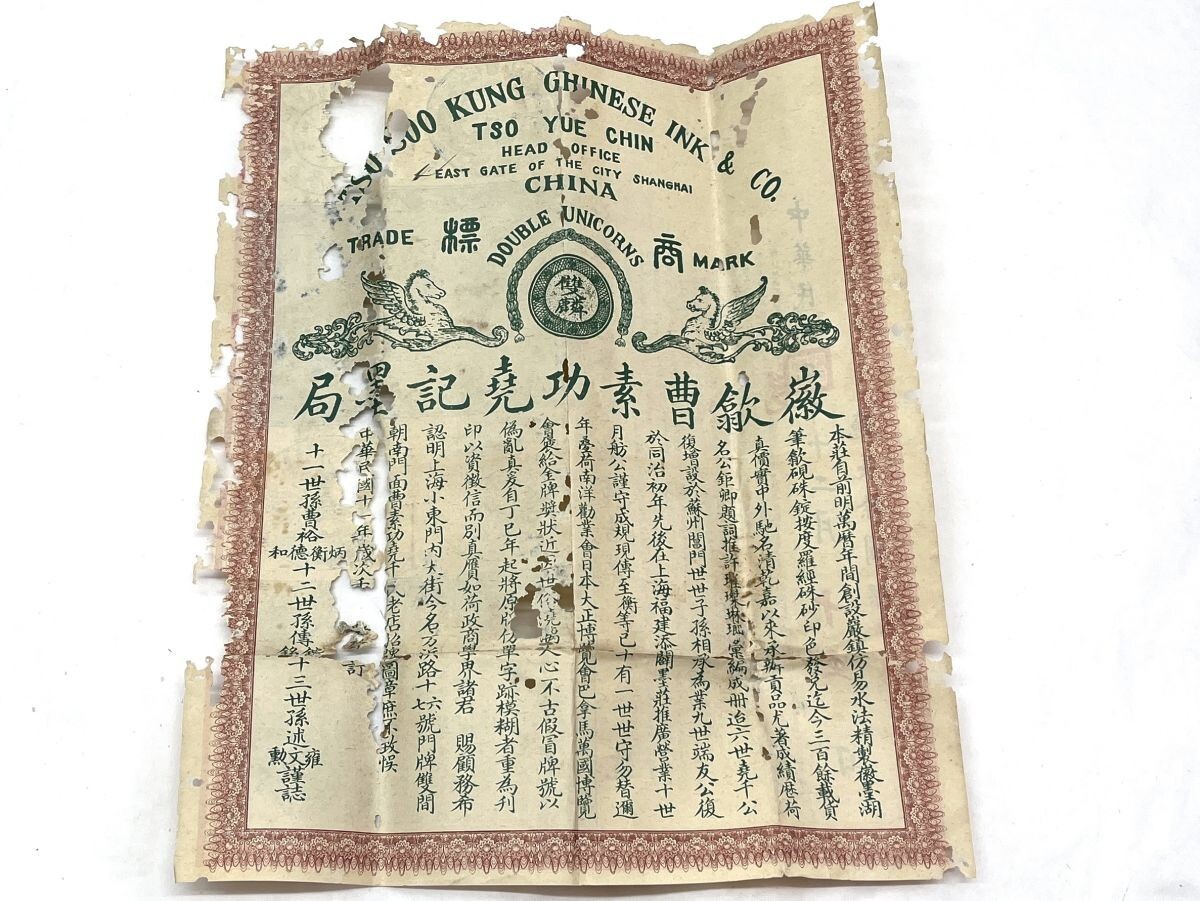 TSO SOO KUNG CHINESE INK & CO.
TSO YUE CHIN
HEAD OFFICE
EAST GATE OF THE CITY SHANGHAI
CHINA
TRADE 標 DOUBLE UNICORNS 商 MARK
雙麟
徽歙曹素功堯記墨局
本莊自前明萬曆年間創設巖鎮仿易水法精製徽墨湖
筆歙硯硃錠按度羅經硃砂印色發兌迄今三百餘載貨
真價實中外馳名清乾嘉以來承辦貢品尤著成績歷荷
名公鉅卿題詞推許璀璨琳瑯彙編成冊迨六世堯千公
復增設於蘇州閶門世世子孫相承為業九世端友公復
於同治初年先後在上海福建添闢墨莊推廣營業十世
月舫公謹守成規現傳至衡等已十有一世世守勿替邇
年疊荷南洋勸業會日本大正博覽會巴拿馬萬國博覽
會獎給金牌獎狀近 世 人心不古假冒牌號以
偽亂真爰自丁巳年起將原牌仿單字跡模糊者重為刊
印以資徵信而別真贋如荷政商學界諸君 賜顧務布
認明上海小東門內大街今名方浜路十六七號門牌雙間
朝南門面曹素功堯千氏老店 圖章庶不致悞
中華民國十一年歲次壬 訂
十一世孫曹裕炳衡德和 十二世孫傳 銘 十三世孫述文雍勳謹誌